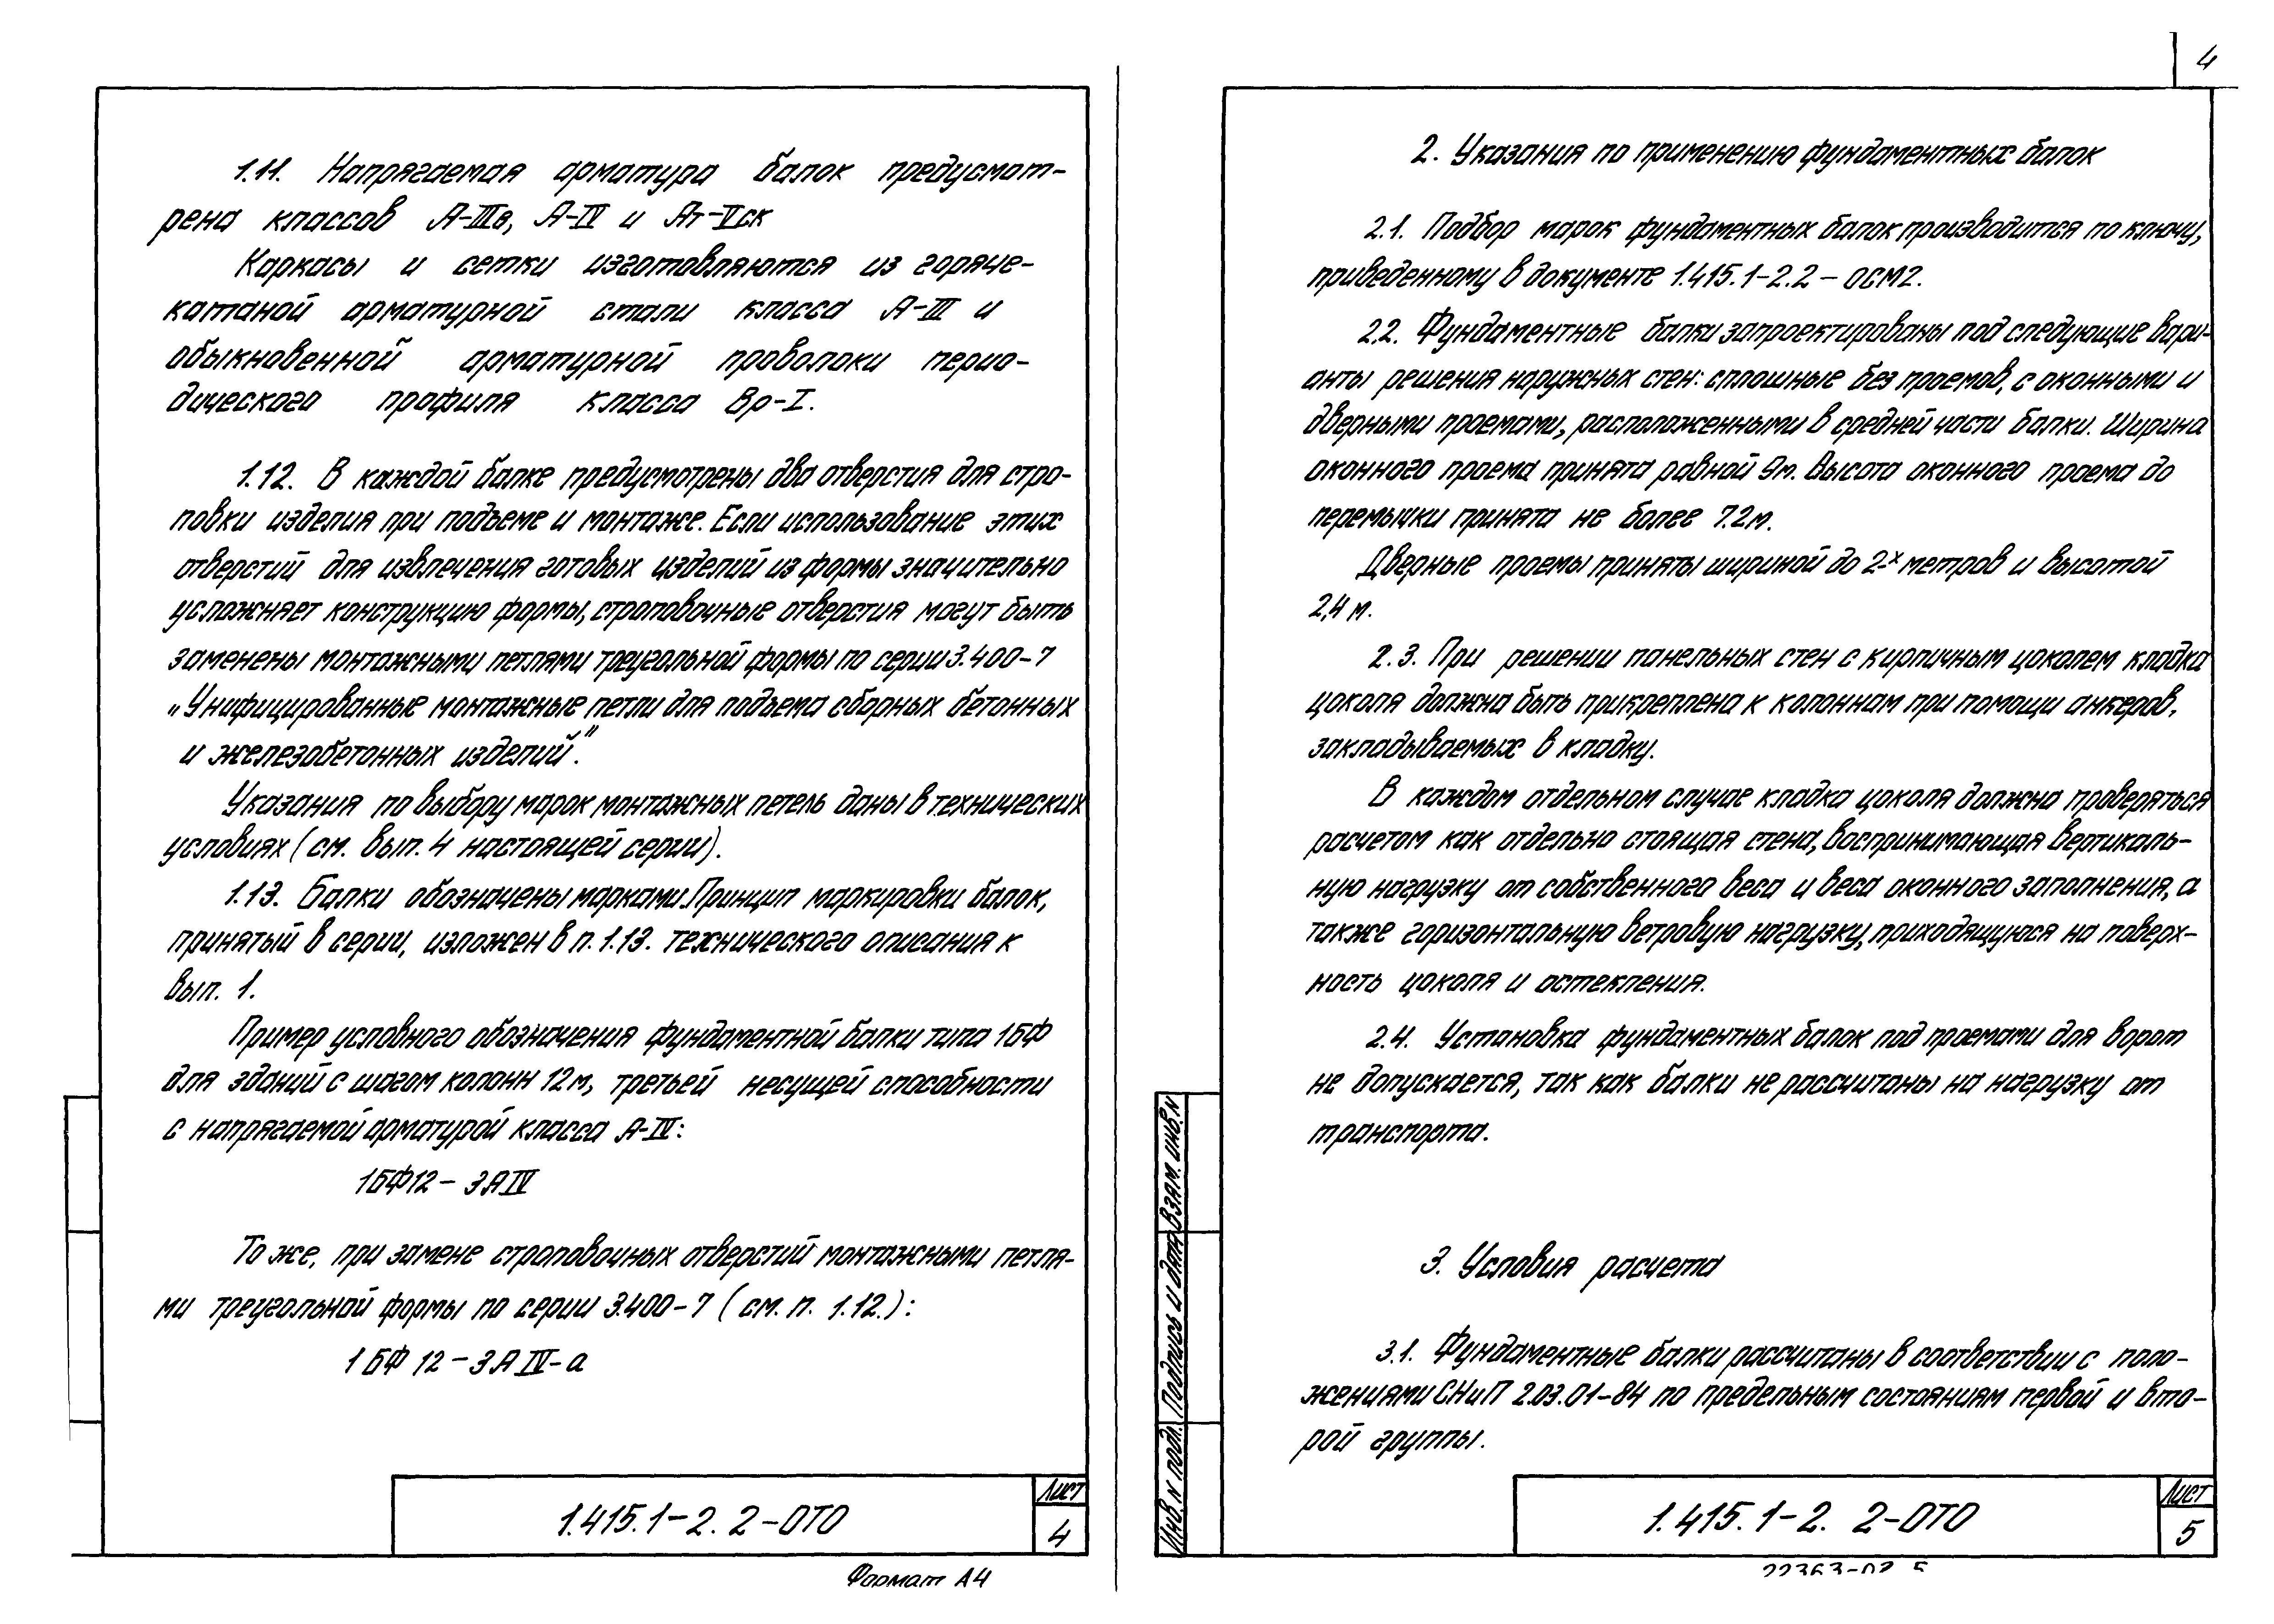 1.11. Напрягаемая арматура балок предусмот-
рена классов А-IIIв, А-IV и Ат-Vск
Каркасы и сетки изготовляются из горяче-
катаной арматурной стали класса А-III и
обыкновенной арматурной проволоки перио-
дического профиля класса Вр-I.
1.12. В каждой балке предусмотрены два отверстия для стро-
повки изделия при подъеме и монтаже. Если использование этих
отверстий для извлечения готовых изделий из формы значительно
усложняет конструкцию формы, строповочные отверстия могут быть
заменены монтажными петлями треугольной формы по серии 3.400-7
„Унифицированные монтажные петли для подъема сборных бетонных
и железобетонных изделий".
Указания по выбору марок монтажных петель даны в технических
условиях (см. вып. 4 настоящей серии).
1.13. Балки обозначены марками. Принцип маркировки балок,
принятый в серии, изложен в п. 1.13. технического описания к
вып. 1.
Пример условного обозначения фундаментной балки типа 1БФ
для зданий с шагом колонн 12м, третьей несущей способности
с напрягаемой арматурой класса А-IV:
1БФ12-3АIV
То же, при замене строповочных отверстий монтажными петля-
ми треугольной формы по серии 3.400-7 (см. п. 1.12.):
1БФ12-3АIV-а
1.415.1-2. 2-ОТО
Лист
4
Формат А4
4
2. Указания по применению фундаментных балок
2.1. Подбор марок фундаментных балок производится по ключу,
приведенному в документе 1.415.1-2.2-ОСМ2.
2.2. Фундаментные балки запроектированы под следующие вари-
анты решения наружных стен: сплошные без проемов, с оконными и
дверными проемами, расположенными в средней части балки. Ширина
оконного проема принята равной 9м. Высота оконного проема до
перемычки принята не более 7.2м.
Дверные проемы приняты шириной до 2-х метров и высотой
2,4 м.
2.3. При решении панельных стен с кирпичным цоколем кладка
цоколя должна быть прикреплена к колоннам при помощи анкеров,
закладываемых в кладку.
В каждом отдельном случае кладка цоколя должна проверяться
расчетом как отдельно стоящая стена, воспринимающая вертикаль-
ную нагрузку от собственного веса и веса оконного заполнения, а
также горизонтальную ветровую нагрузку, приходящуюся на поверх-
ность цоколя и остекления.
2.4. Установка фундаментных балок под проемами для ворот
не допускается, так как балки не рассчитаны на нагрузку от
транспорта.
3. Условия расчета
3.1. Фундаментные балки рассчитаны в соответствии с поло-
жениями СНиП 2.03.01-84 по предельным состояниям первой и вто-
рой группы.
Взам. инв. N
Подпись и дата
Инв. N подл.
1.415.1-2. 2-ОТО
Лист
5
22363-03 5